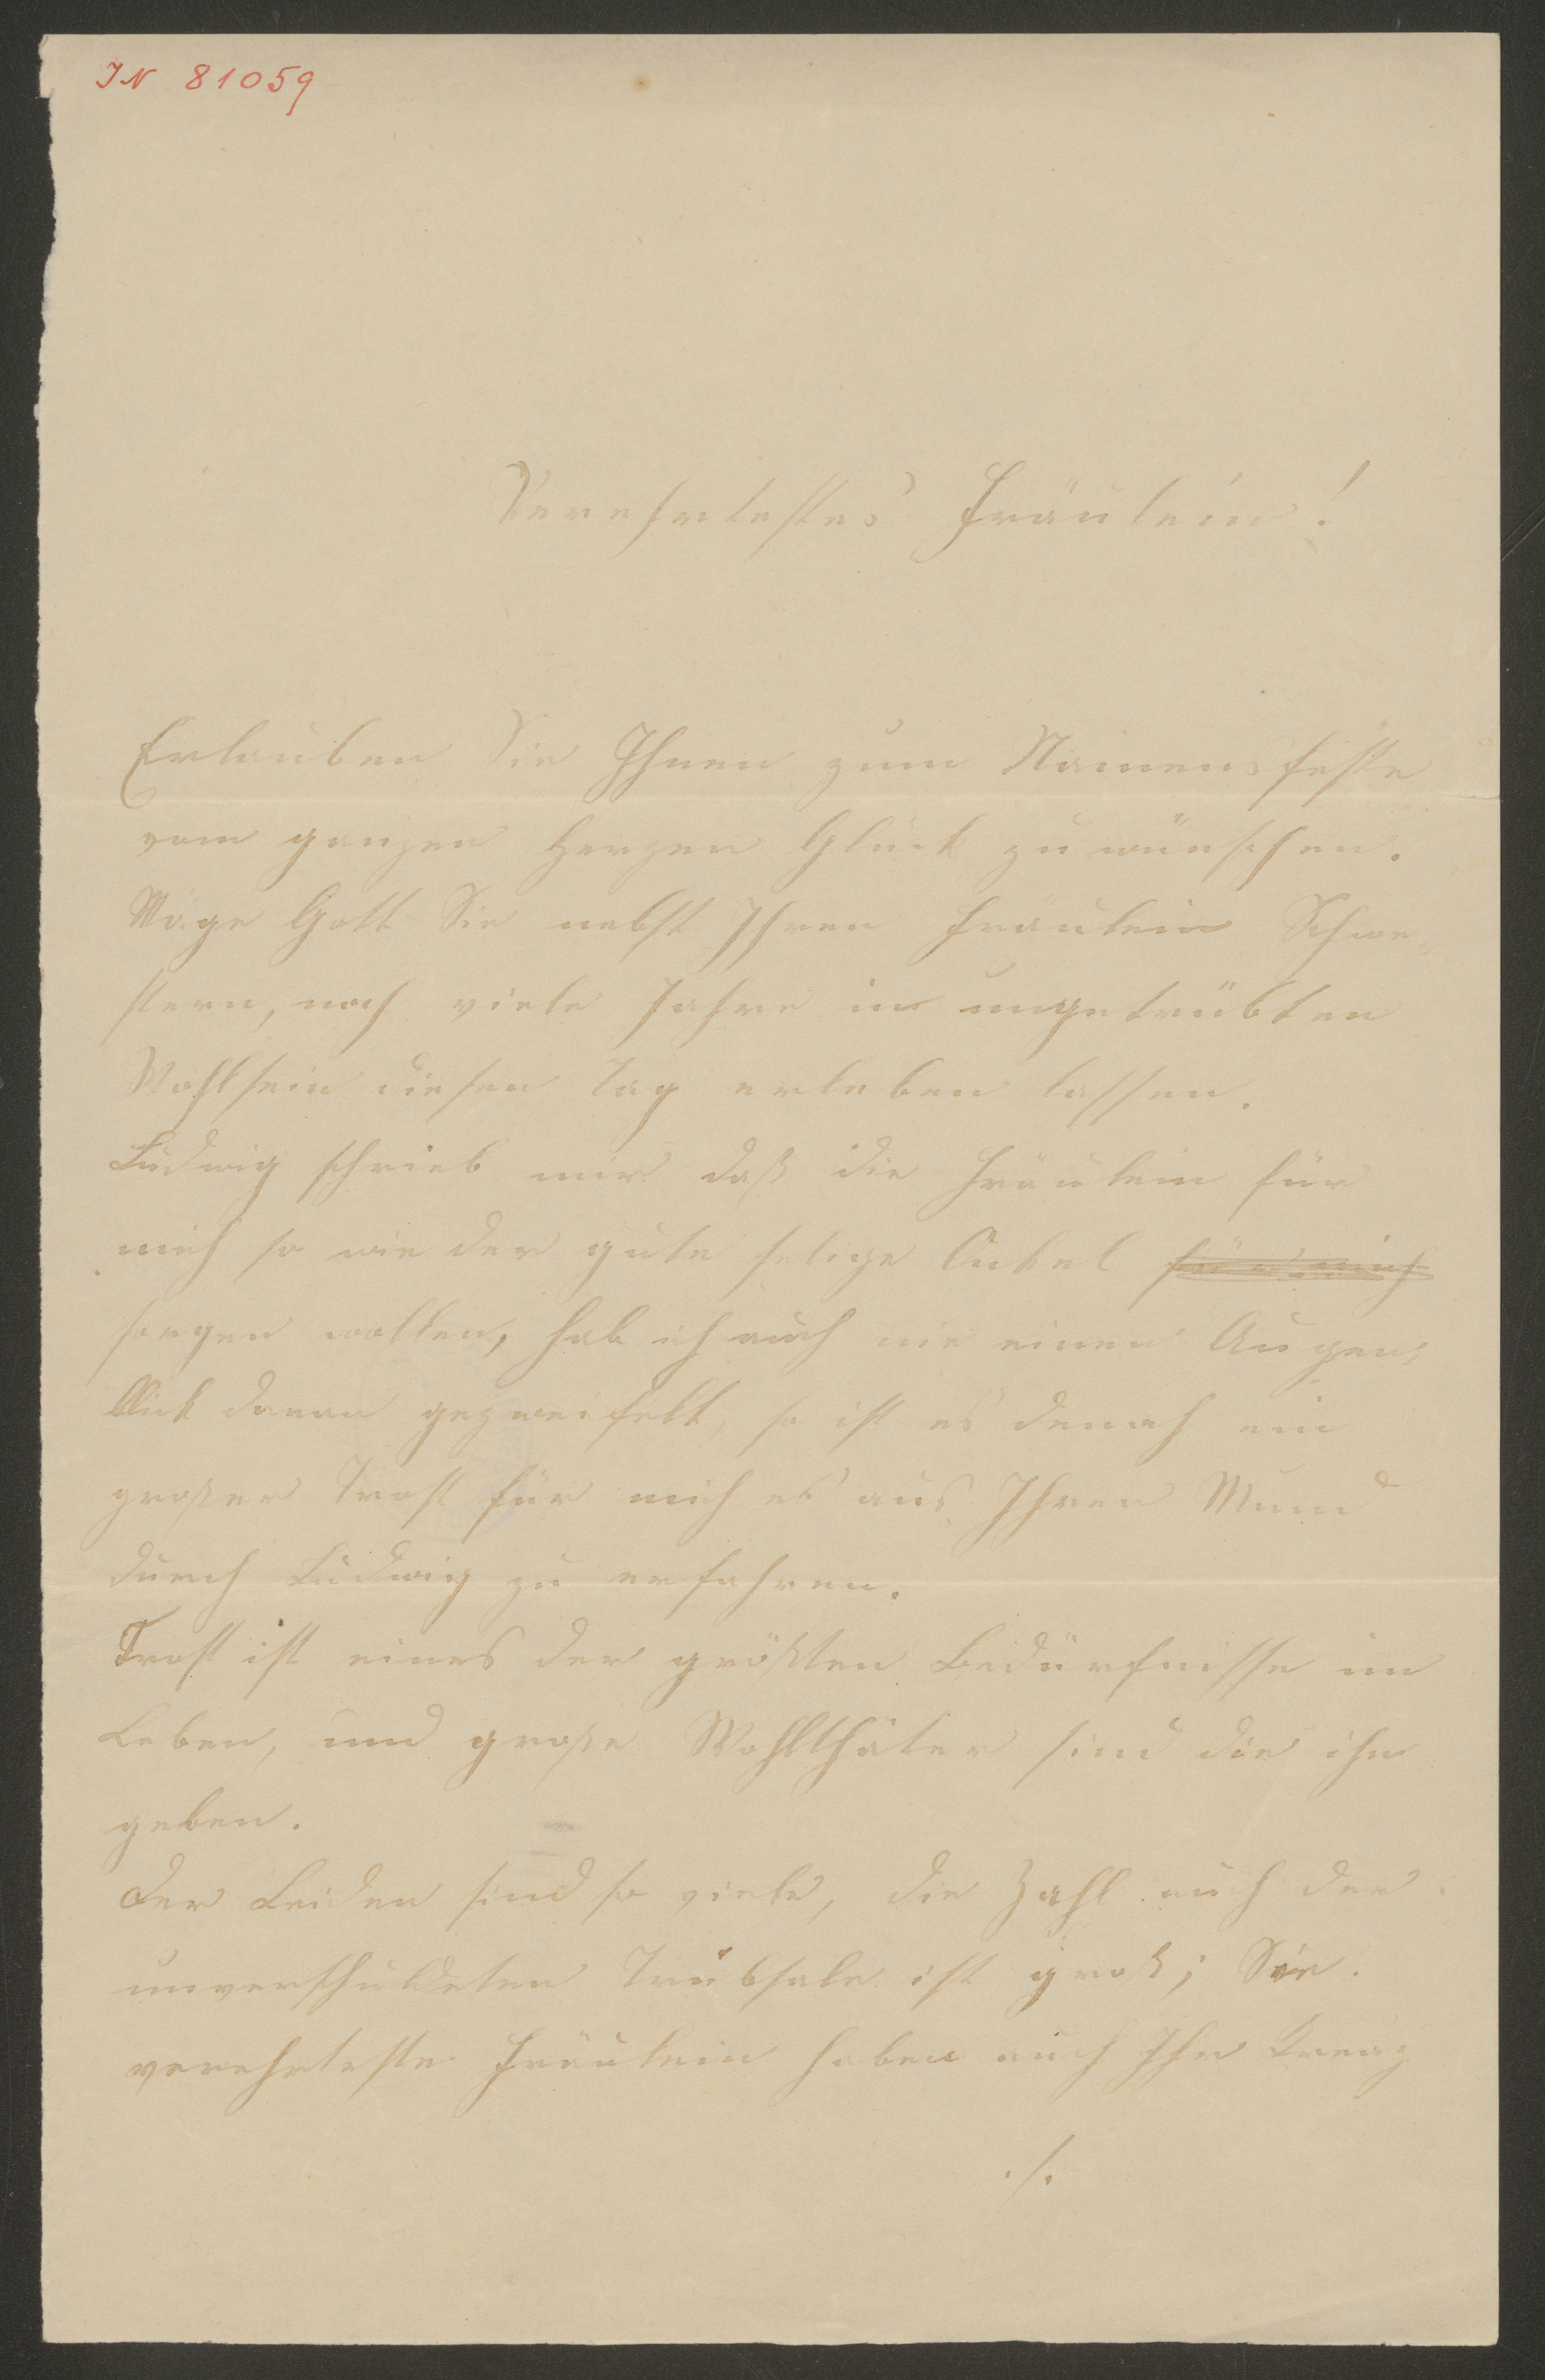 IN 81059
Verehrtestes Fräulein!
Erlauben Sie Ihnen zum Namensfeste
vom ganzen Herzen Glück zu wünschen.
Möge Gott Sie nebst Ihren Fräulein Schwe-
stern, noch viele Jahre in ungetrübten
Wohlsein diesen Tag erleben lassen.
Ludwig schrieb mir daß die Fräulein für
mich so wie der gute selige Onkel für mich
sorgen wollen, hab ich auch nie einen Augen-
blick daran gezweifelt, so ist es denoch ein
großer Trost für mich es aus Ihren Mund
durch Ludwig zu erfahren.
Trost ist eines der größten Bedürfnisse im
Leben, und große Wohlthäter sind die ihn
geben.
Der Leiden sind so viele, die Zahl auch der
unverschuldeten Trübsale ist groß; Sie
verehrteste Fräulein haben auch Ihr Kreuz
./.